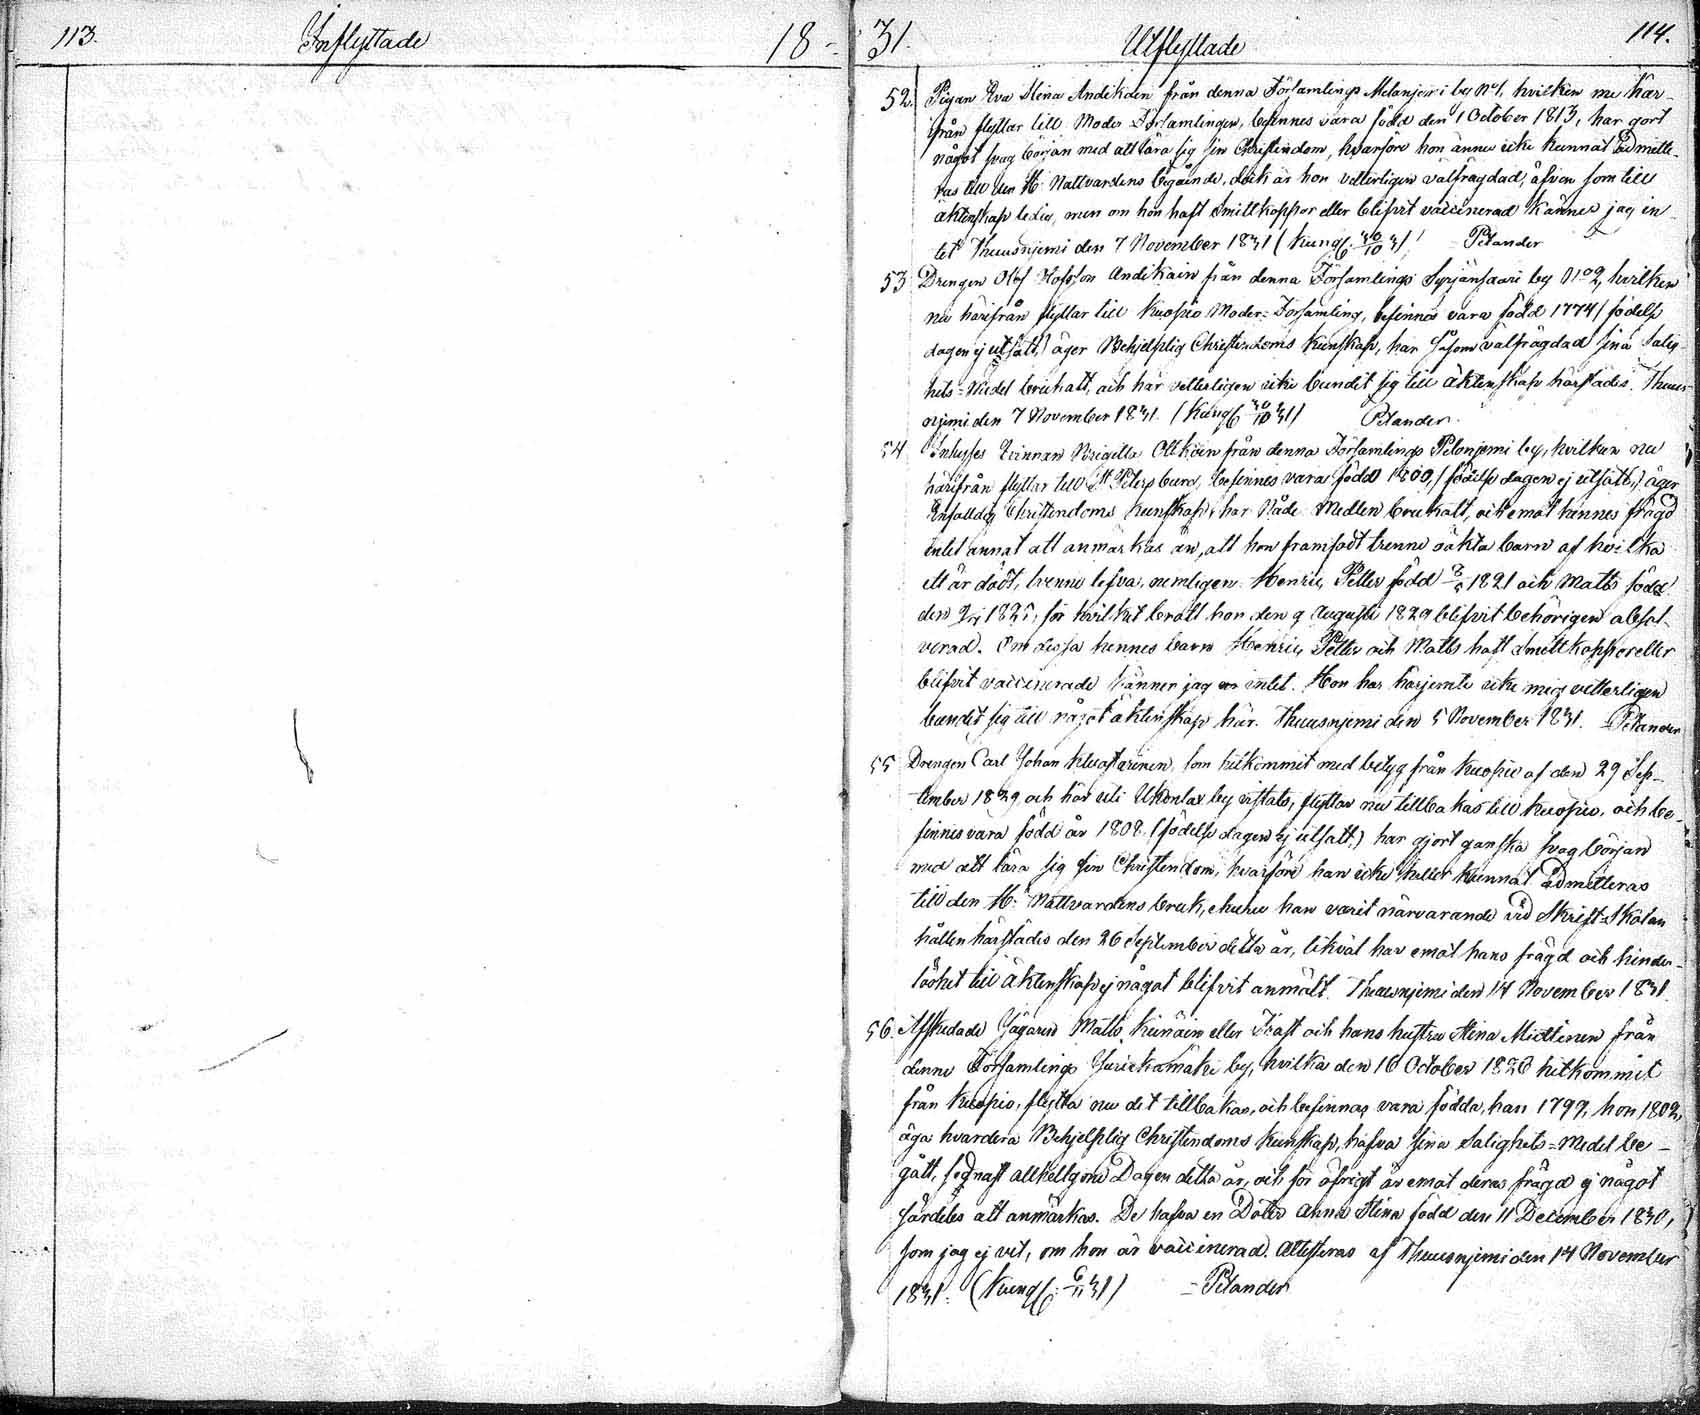 113. Inflyttade 18-
31. Utflyttade 114.
52. Pigan Eva Stina Andikain från denna Församlings Melanjemi by No 1, hvilken nu här-
ifrån flyttar till Moder Församlingen, befinnes vara född den 1 October 1813, har gort
något svag början med att lära sig sin Christendom, hvarföre hon ännu icke kunnat admitte-
ras till den H. Nattvardens begående, dock är hon vetterligen välfrägdad, äfven som till
äktenskap ledig, men om hon haft Smittkoppor eller blifvit vaccinerad känner jag in-
tet. Thuusnjemi den 7 November 1831 (Kungs. 30/10 31) Pelander
53 Drengen Olof Olofsson Andikain från denna Församlings Syrjänsaari by No 2, hvilken
nu härifrån flyttar till Kuopio Moder-Församling, befinnes vara född 1774 (födelse
dagen ej utsatt,) äger Behjelplig Christendoms Kunskap, har såsom välfrägdad sina Salig-
hets-Medel brukatt, och har vetterligen icke bundit sig till äktenskap härstädes. Thuus-
njemi den 7 November 1831. (Kungs. 30/10 31) Pelander.
54 Inhyses Qvinnan Brigitta Ollikain från denna Församlings Pelonjemi by, hvilken nu
härifrån flyttar till St Petersburg, befinnes vara född 1800, (födelse dagen ej utsatt,) äger
Enfalldig Christendoms Kunskap, har Nåde Medlen brukatt, och emot hennes frägd
intet annat att anmärkas än, att hon framfödt trenne oäkta barn af hvilka
ett är dödt, tvenne lefva, nemligen Henric Petter född 1821 och Matts född
den 1825, för hvilket brott hon den 9 Augusti 1829 blifvit behörigen absol-
verad. Om dessa hennes barn Henric Petter och Matts haft Smittkoppor eller
blifvit vaccinerade känner jag intet. Hon har härjemte icke mig vetterligen
bundit sig till något äktenskap här. Thuusnjemi den 5 November 1831. Pelander
55 Drengen Carl Johan Kluastarinen, som hitkommit med betyg från Kuopio af den 29 Sep-
tember 1829 och här uti Ukonlax by vistats, flyttar nu tillbakas till Kuopio, och be-
finnes vara född år 1808. (födelse dagen ej utsatt.) har gjort ganska svag början
med att lära sig sin Christendom, hvarföre han icke heller kunnat admitteras
till den H. Nattvardens bruk, ehuru han varit närvarande vid Skrift-Skolan
hållen härstädes den 26 September detta år, likväl har emot hans frägd och hinder-
löshet till äktenskap ej något blifvit anmält. Thuusnjemi den 14 November 1831.
56. Afskedade Jägaren Matts Kinäin eller Frast och hans hustru Stina Miettinen från
denna Församlings Juurickamäki by, hvilka den 16 October 1826 hitkommit
från Kuopio, flytta nu dit tillbakas, och befinnas vara födda, han 1797, hon 1802,
äga hvardera Behjelplig Christendoms Kunskap, hafva sina Salighets-Medel be-
gått, sednast allhellgona Dagen detta år, och för öfrigt är emot deras frägd ej något
särdeles att anmärkas. De hafva en Doter Anna Stina född den 11 December 1830,
som jag ej vet, om hon är vaccinerad. Attesteras af Thuusnjemi den 14 November
1831. (Kungs. 6/11 31) Pelander